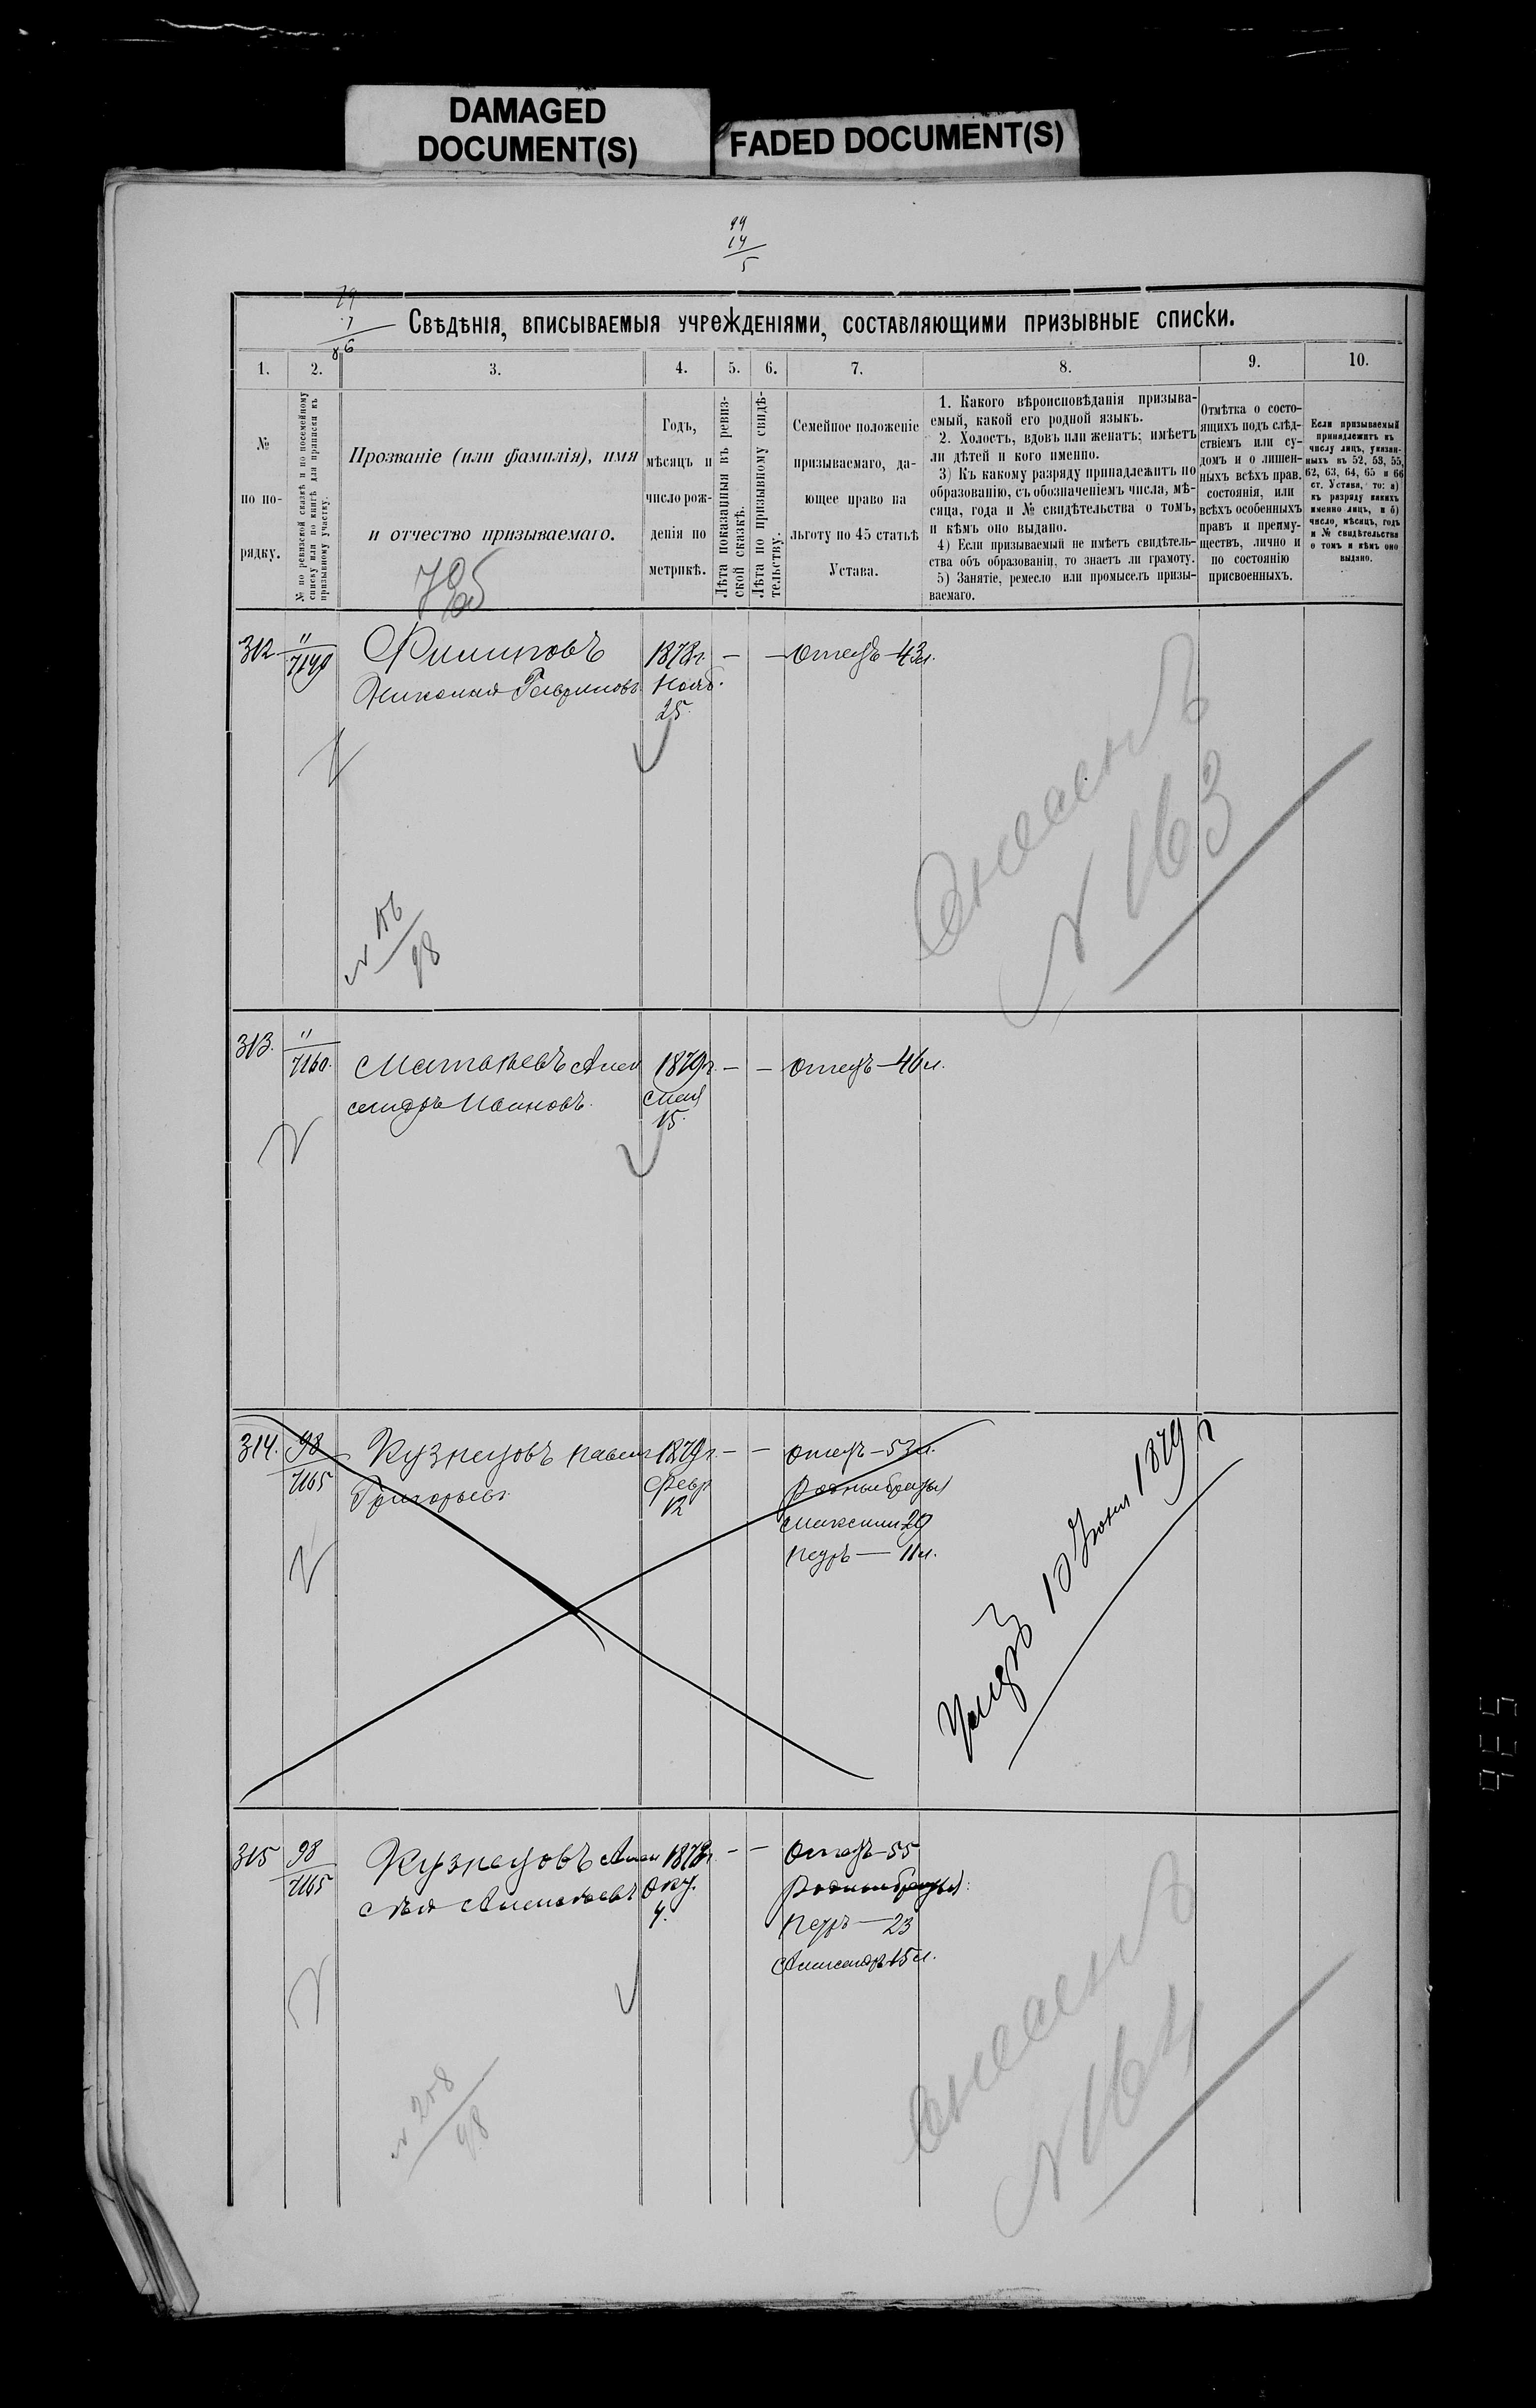 DAMAGED
DOCUMENT(S)
FADED DOCUMENT(S)
99
14
5
Свѣдѣнія, вписываемыя учрежденіями, составляющими призывные списки.
1.
2.
3.
4.
5.
6.
7.
8.
9.
10.
№
по по-
рядку.
№ по ревизской сказкѣ и по посемейному
списку или по книгѣ для приписки къ
призывному участку.
Прозваніе (или фамилія), имя
и отчество призываемаго.
Годъ,
мѣсяцъ и
число рож-
денія по
метрикѣ.
Лѣта показанныя въ ревиз-
ской сказкѣ.
Лѣта по призывному свидѣ-
тельству.
Семейное положеніе
призываемаго, да-
ющее право на
льготу по 45 статьѣ
Устава.
1. Какого вѣроисповѣданія призыва-
емый, какой его родной языкъ.
2. Холостъ, вдовъ или женатъ; имѣетъ
ли дѣтей и кого именно.
3) Къ какому разряду принадлежитъ по
образованію, съ обозначеніемъ числа, мѣ-
сяца, года и № свидѣтельства о томъ,
и кѣмъ оно выдано.
4) Если призываемый не имѣетъ свидѣтель-
ства объ образованіи, то знаетъ ли грамоту.
5) Занятіе, ремесло или промыселъ призы-
ваемаго.
Отмѣтка о состо-
ящихъ подъ слѣд-
ствіемъ или су-
домъ и о лишен-
ныхъ всѣхъ прав.
состоянія, или
всѣхъ особенныхъ
правъ и преиму-
ществъ, лично и
по состоянію
присвоенныхъ.
Если призываемый
принадлежитъ къ
числу лицъ, указан-
ныхъ въ 52, 53, 55,
62, 63, 64, 65 и 66
ст. Устава, то: а)
къ разряду какихъ
именно лицъ, и б)
число, мѣсяцъ, годъ
и № свидѣтельства
о томъ и кѣмъ оно
выдано.
312. "
7149
Филиповъ
Николай Гавриловъ
1878г.
Нояб.
25.
— — Отецъ — 43л.
Внесенъ
N 163
N 156
98
313. "
7160.
Матвѣевъ Алек
сандръ Ивановъ.
1879г.
Мая
15.
— — Отецъ — 46л.
314. 98
7165
Кузнецовъ Павелъ
Григорьевъ
1879г.
Февр
12
— — Отецъ — 53л.
Родные братья
Максимъ 20
Петръ — 11л.
Умеръ 10 Іюня 1879 г
315 98
7165
Кузнецовъ Алек
сѣй Алексѣевъ
1878г.
Окт.
4.
— — Отецъ — 55
Родные братья:
Петръ — 23
Александръ 15л.
Внесенъ
N 164
N 208
98